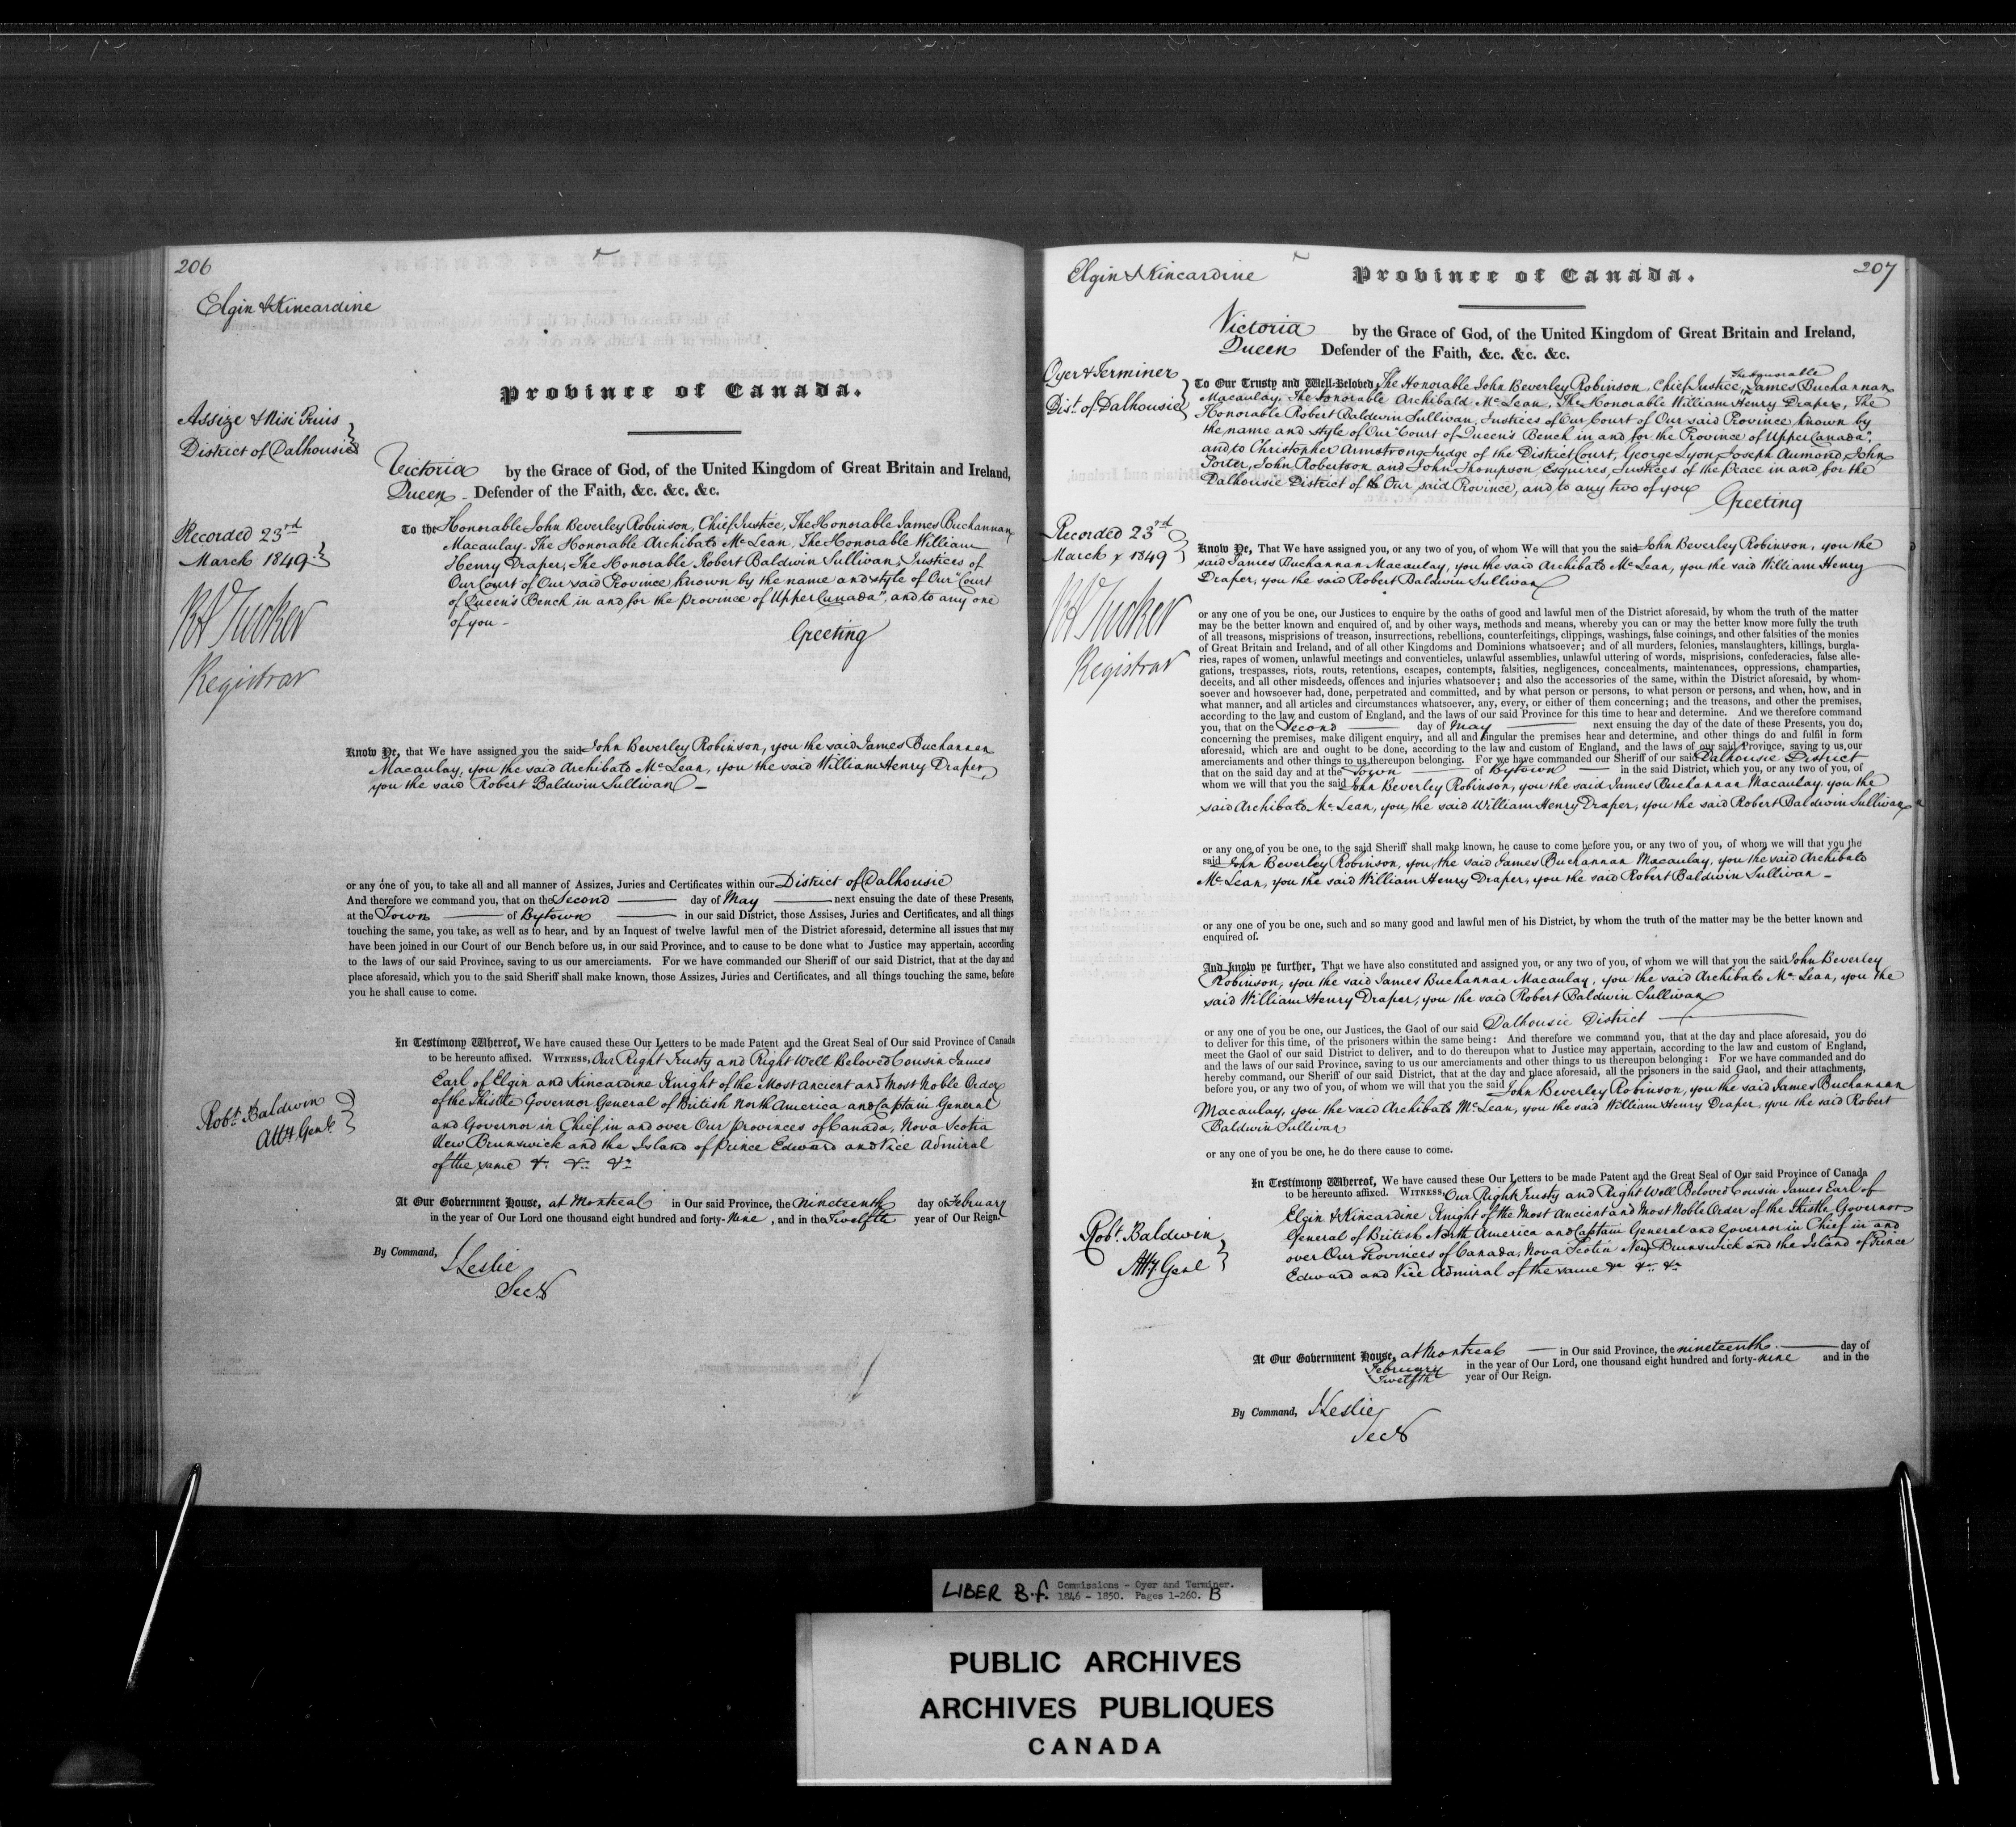 206
Elgin & Kincardine
Province of Canada.
Assize & Nisi Prius
District of Dalhousie
Victoria by the Grace of God, of the United Kingdom of Great Britain and Ireland,
Queen Defender of the Faith, &c. &c. &c.
Recorded 23rd
March 1849
RA Tucker
Registrar
To the Honorable John Beverley Robinson, Chief Justice, The Honorable James Buchannan
Macaulay. The Honorable Archibald McLean, The Honorable William
Henry Draper, The Honorable Robert Baldwin Sullivan, Justices of
Our Court of Our said Province known by the name and style of Our "Court
of Queen's Bench in and for the province of Upper Canada", and to any one
of you -
Greeting
Know Ye, that We have assigned you the said John Beverley Robinson, you the said James Buchannan
Macaulay, you the said Archibald McLean, you the said William Henry Draper,
you the said Robert Baldwin Sullivan -
or any one of you, to take all and all manner of Assizes, Juries and Certificates within our District of Dalhousie
And therefore we command you, that on the Second day of May next ensuing the date of these Presents,
at the Town of Bytown in our said District, those Assises, Juries and Certificates, and all things
touching the same, you take, as well as to hear, and by an Inquest of twelve lawful men of the District aforesaid, determine all issues that may
have been joined in our Court of our Bench before us, in our said Province, and to cause to be done what to Justice may appertain, according
to the laws of our said Province, saving to us our amerciaments. For we have commanded our Sheriff of our said District, that at the day and
place aforesaid, which you to the said Sheriff shall make known, those Assizes, Juries and Certificates, and all things touching the same, before
you he shall cause to come.
In Testimony Whereof, We have caused these Our Letters to be made Patent and the Great Seal of Our said Province of Canada
to be hereunto affixed. WITNESS, Our Right Trusty and Right Well Beloved Cousin James
Earl of Elgin and Kincardine Knight of the Most Ancient and Most Noble Order
of the Thistle Governor General of British North America and Captain General
and Governor in Chief, in and over Our provinces of Canada, Nova Scotia
New Brunswick and the Island of Prince Edward and Vice Admiral
of the same &c &c &c
Robt. Baldwin
Atty. Genl.
At Our Government House, at Montreal in Our said Province, the nineteenth day of February
in the year of Our Lord one thousand eight hundred and forty-nine, and in the Twelfth year of Our Reign.
By Command,
J Leslie
Secy
Elgin & Kincardine
Province of Canada.
207
Victoria by the Grace of God, of the United Kingdom of Great Britain and Ireland,
Queen Defender of the Faith, &c. &c. &c.
Oyer & Terminer
Dist. of Dalhousie
Recorded 23rd
March 1849
RA Tucker
Registrar
To Our Trusty and Well-Beloved The Honorable John Beverley Robinson, Chief Justice, The Honorable James Buchannan
Macaulay, The Honorable Archibald McLean, The Honorable William Henry Draper, The
Honorable Robert Baldwin Sullivan, Justices of Our Court of Our said Province known by
the name and style of Our "Court of Queen's Bench in and for the Province of Upper Canada",
and to Christopher Armstrong Judge of the District Court, George Lyon, Joseph Aumond, John
Porter, John Robertson and John Thompson Esquires, Justices of the peace in and for the
Dalhousie District of Our said Province, and to any two of you
Greeting
Know Ye, That We have assigned you, or any two of you, of whom We will that you the said John Beverley Robinson, you the
said James Buchannan Macaulay, you the said Archibald McLean, you the said William Henry
Draper, you the said Robert Baldwin Sullivan
or any one of you be one, our Justices to enquire by the oaths of good and lawful men of the District aforesaid, by whom the truth of the matter
may be the better known and enquired of, and by other ways, methods and means, whereby you can or may the better know more fully the truth
of all treasons, misprisions of treason, insurrections, rebellions, counterfeitings, clippings, washings, false coinings, and other falsities of the monies
of Great Britain and Ireland, and of all other Kingdoms and Dominions whatsoever; and of all murders, felonies, manslaughters, killings, burgla-
ries, rapes of women, unlawful meetings and conventicles, unlawful assemblies, unlawful uttering of words, misprisions, confederacies, false alle-
gations, trespasses, riots, routs, retentions, escapes, contempts, falsities, negligences, concealments, maintenances, oppressions, champarties,
deceits, and all other misdeeds, offences and injuries whatsoever; and also the accessories of the same, within the District aforesaid, by whom-
soever and howsoever had, done, perpetrated and committed, and by what person or persons, to what person or persons, and when, how, and in
what manner, and all articles and circumstances whatsoever, any, every, or either of them concerning; and the treasons, and other the premises,
according to the law and custom of England, and the laws of our said Province for this time to hear and determine. And we therefore command
you, that on the Second day of May next ensuing the day of the date of these Presents, you do,
concerning the premises, make diligent enquiry, and all and singular the premises hear and determine, and other things do and fulfil in form
aforesaid, which are and ought to be done, according to the law and custom of England, and the laws of our said Province, saving to us our
amerciaments and other things to us thereupon belonging. For we have commanded our Sheriff of our said Dalhousie District
that on the said day and at the Town of Bytown in the said District, which you, or any two of you, of
whom we will that you the said John Beverley Robinson, you the said James Buchannan Macaulay. you the
said Archibald McLean, you the said William Henry Draper, you the said Robert Baldwin Sullivan
or any one of you be one, to the said Sheriff shall make known, he cause to come before you, or any two of you, of whom we will that you the
said John Beverley Robinson, you the said James Buchannan Macaulay, you the said Archibald
McLean, you the said William Henry Draper, you the said Robert Baldwin Sullivan -
or any one of you be one, such and so many good and lawful men of his District, by whom the truth of the matter may be the better known and
enquired of.
And know ye further, That we have also constituted and assigned you, or any two of you, of whom we will that you the said John Beverley
Robinson, you the said James Buchannan Macaulay, you the said Archibald McLean, you the
said William Henry Draper, you the said Robert Baldwin Sullivan
or any one of you be one, our Justices, the Gaol of our said Dalhousie District
to deliver for this time, of the prisoners within the same being: And therefore we command you, that at the day and place aforesaid, you do
meet the Gaol of our said District to deliver, and to do thereupon what to Justice may appertain, according to the law and custom of England,
and the laws of our said Province, saving to us our amerciaments and other things to us thereupon belonging: For we have commanded and do
hereby command, our Sheriff of our said District, that at the day and place aforesaid, all the prisoners in the said Gaol, and their attachments,
before you, or any two of you, of whom we will that you the said John Beverley Robinson, you the said James Buchannan
Macaulay, you the said Archibald McLean, you the said William Henry Draper, you the said Robert
Baldwin Sullivan
or any one of you be one, he do there cause to come.
In Testimony Whereof, We have caused these Our Letters to be made Patent and the Great Seal of Our said Province of Canada
to be hereunto affixed. WITNESS, Our Right Trusty and Right Well Beloved Cousin James Earl of
Elgin & Kincardine Knight of the Most Ancient and Most Noble Order of the Thistle Governor
General of British North America and Captain General and Governor in Chief in and
over Our Provinces of Canada, Nova Scotia New Brunswick and the Island of Prince
Edward and Vice Admiral of the same &c &c &c
Robt. Baldwin
Atty Genl
At Our Government House, at Montreal in Our said Province, the nineteenth day of
February in the year of Our Lord, one thousand eight hundred and forty-nine and in the
Twelfth year of Our Reign.
By Command, J Leslie
Secy
LIBER B.f. Commissions - Oyer and Terminer.
1846 - 1850. Pages 1-260. B
PUBLIC ARCHIVES
ARCHIVES PUBLIQUES
CANADA